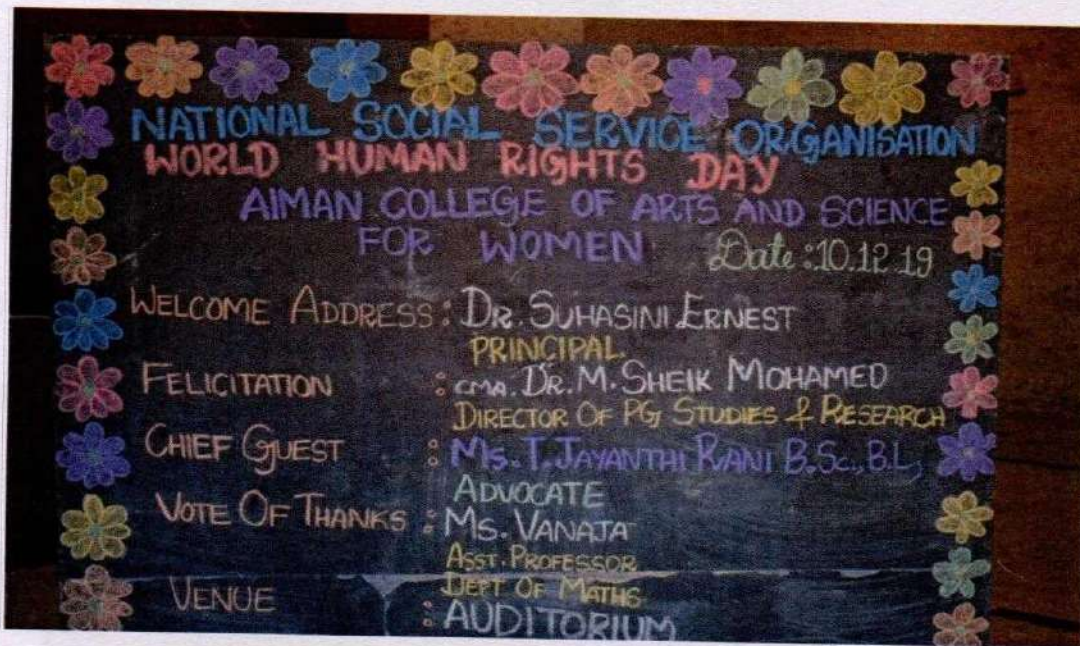 NATIONAL SOCIAL SERVICE ORGANISATION
WORLD HUMAN RIGHTS DAY
AIMAN COLLEGE OF ARTS AND SCIENCE
FOR WOMEN Date:10.12.19
WELCOME ADDRESS: DR. SUHASINI ERNEST
PRINCIPAL.
FELICITATION : CMA. DR. M. SHEIK MOHAMED
DIRECTOR OF PG STUDIES & RESEARCH
CHIEF GUEST : MS. T. JAYANTHI RANI B.Sc., B.L,
ADVOCATE
VOTE OF THANKS : MS. VANAJA
ASST. PROFESSOR
DEPT OF MATHS
VENUE : AUDITORIUM